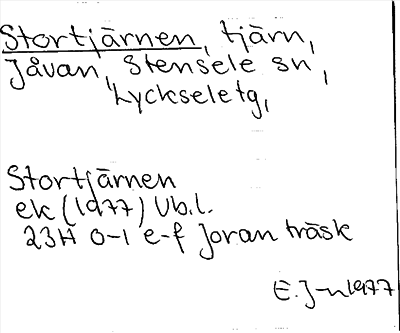 Stortjärnen, tjärn,
Jåvan, Stensele sn,
Lyckseletg,
Stortjärnen
ek (1977) Vb.l.
23H 0-1 e-f Joran träsk
E. J-n 1977